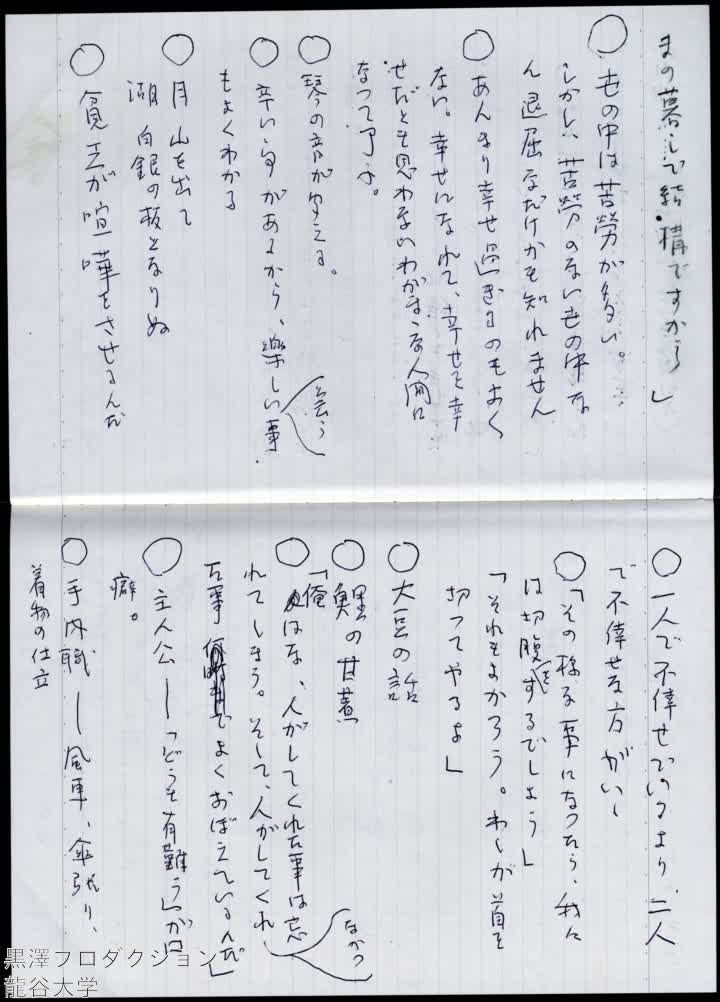 まの暮しで結構ですから」
○ 世の中は苦勞が多い。
しかし、苦勞のない世の中な
ん退屈なだけかも知れません
○ あんまり幸せ過ぎるのもよく
ない。幸せになれて、幸せを幸
せだとも思わないわがまゝな人間に
なって了ふ。
○ 琴の音がきこえる。
○ 辛い事があるから、楽しい事
もよくわかる
○ 月 山を出て
湖 白銀の板となりぬ
○ 貧乏が喧嘩をさせるんだ
○ 一人で不倖せでいるより、二人
で不倖せな方がいゝ
○「その様な事になったら、我々
は切腹をするでしょう」
「それもよかろう。わしが首を
切ってやるよ」
○ 大豆の話
○ 鯉の甘煮
○「俺はな、人がしてくれた事は忘
れてしまう。そして、人がしてくれ
なかつ
た事までよくおぼえているんだ」
○ 主人公―「どうも有難う」が口
癖。
○ 手内職―風車、傘張り、
着物の仕立
黒澤プロダクション
龍谷大学